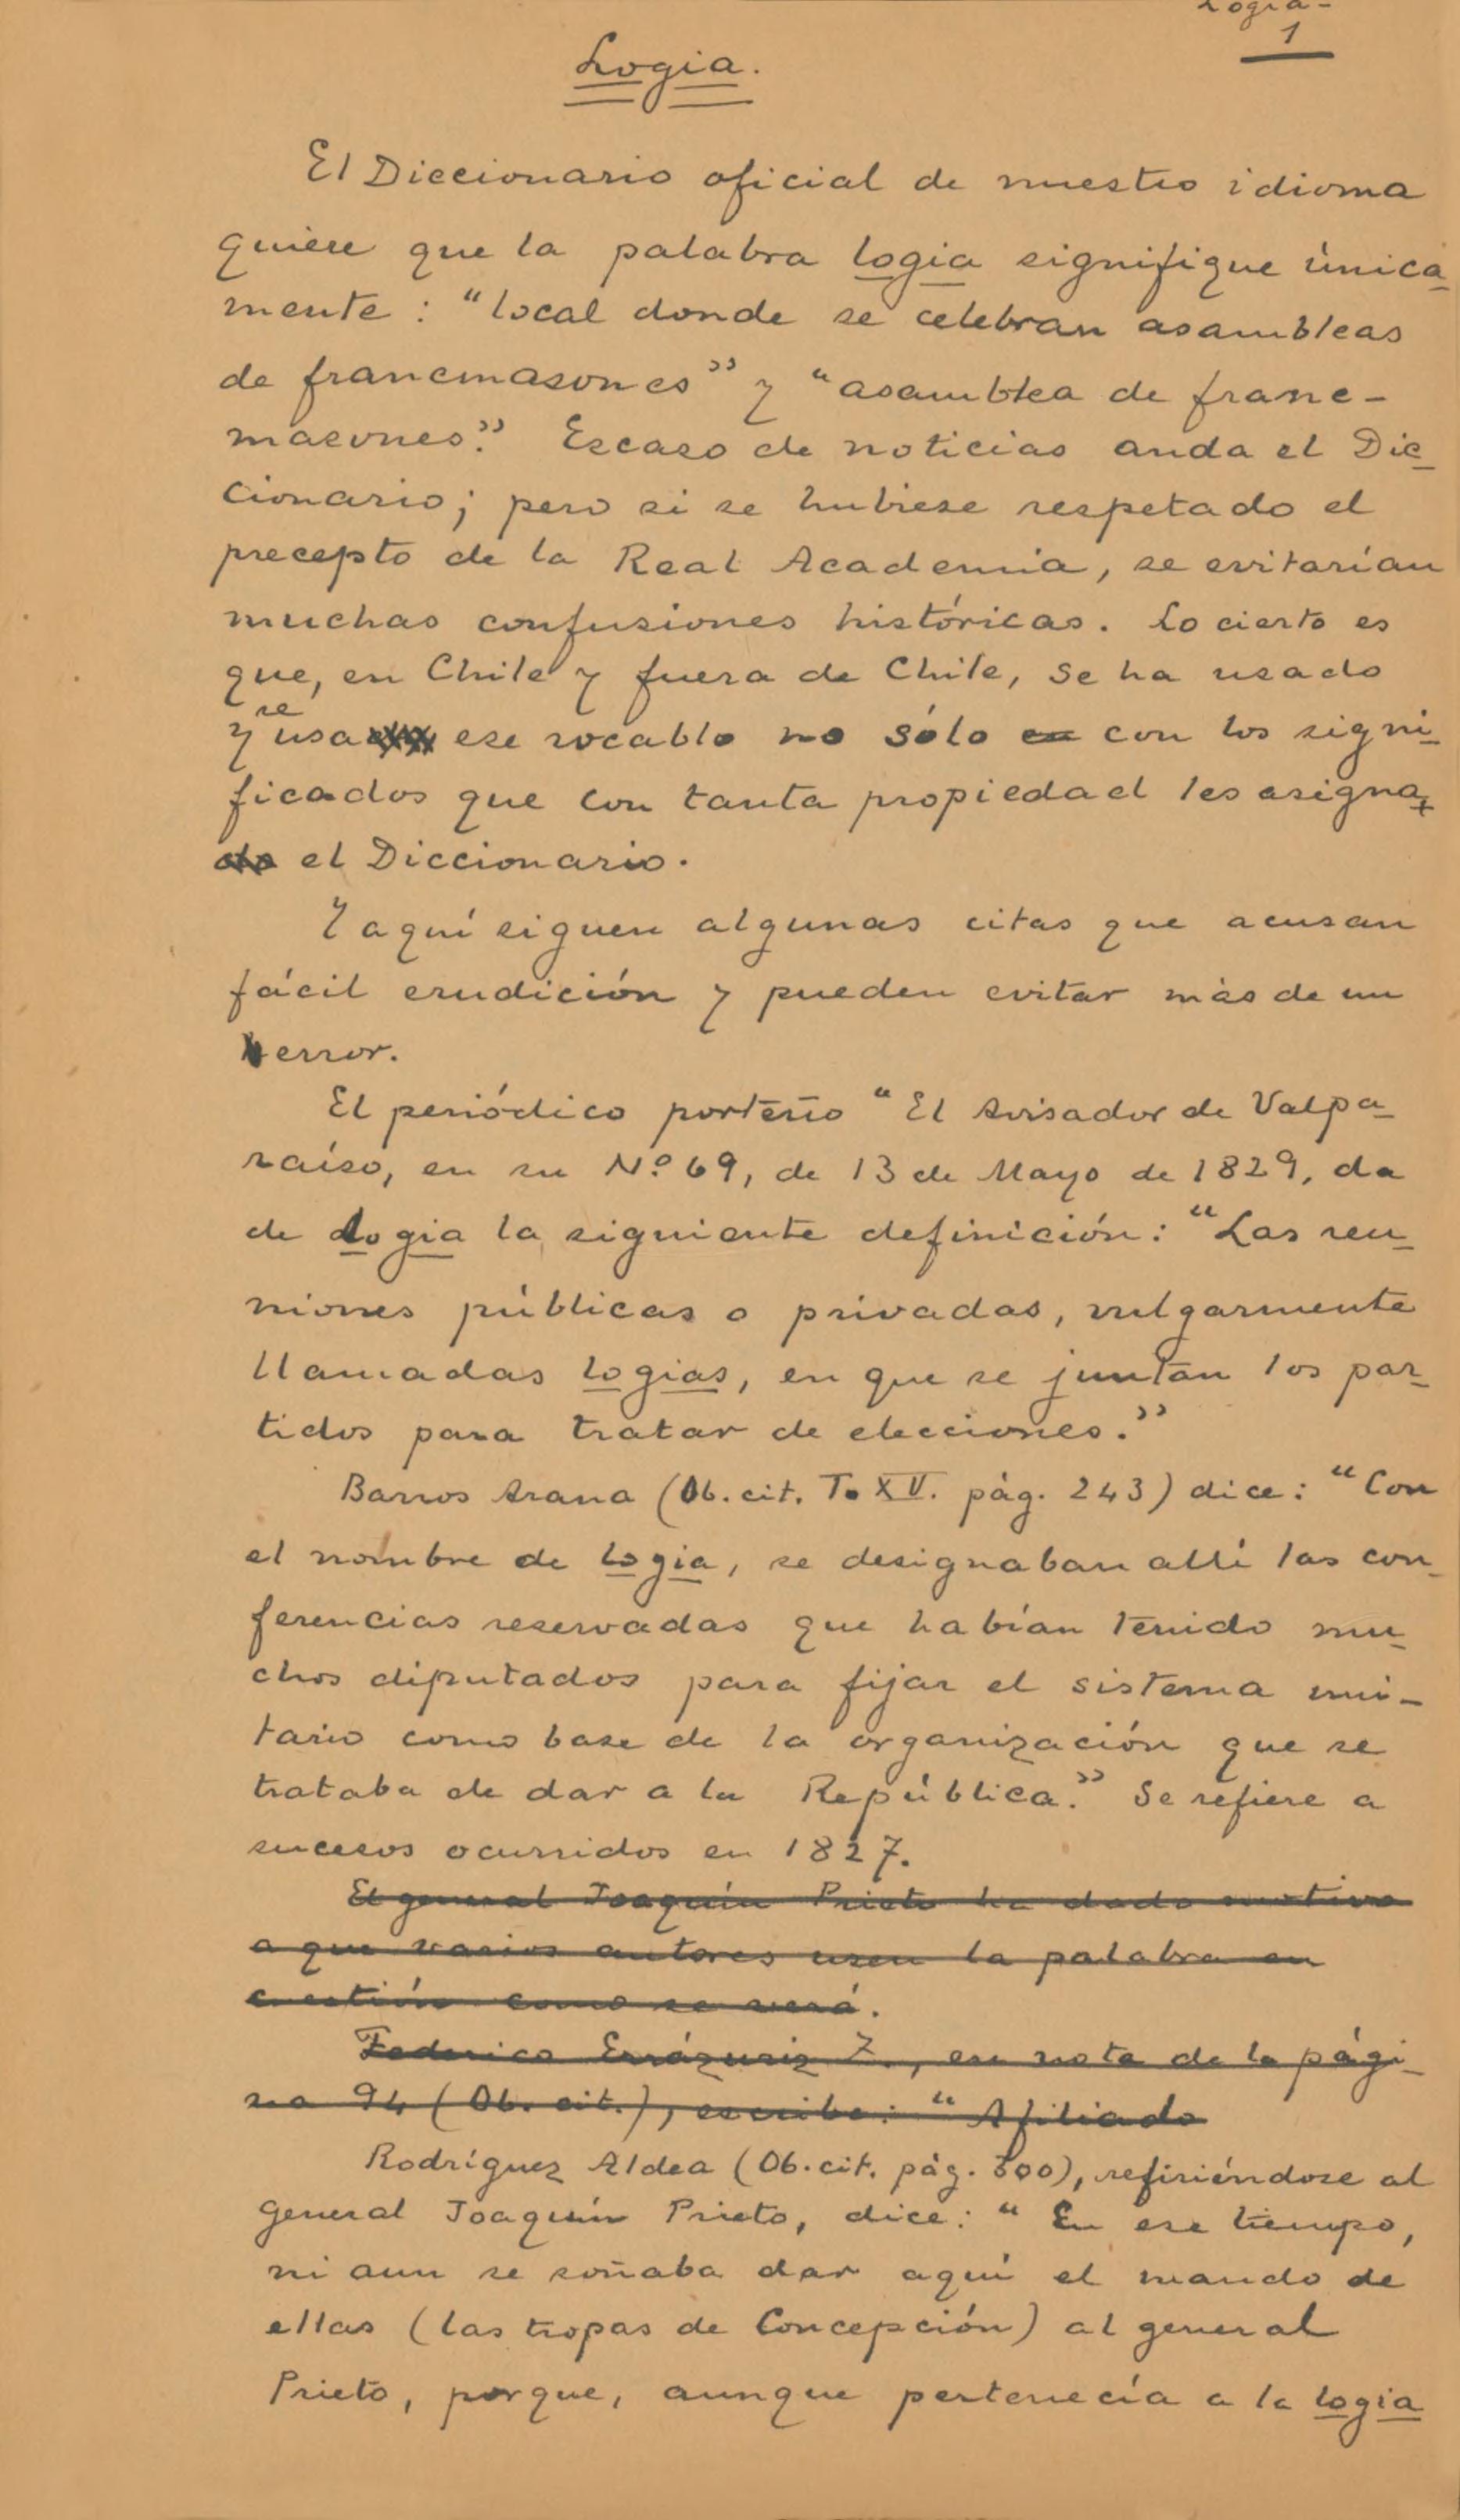 Logia-
1
Logia.
El Diccionario oficial de nuestro idioma
quiere que la palabra logia signifique única_
mente: "local donde se celebran asambleas
de francmasones" y "asamblea de franc-
masones". Escaso de noticias anda el Dic_
cionario; pero si se hubiese respetado el
precepto de la Real Academia, se evitarían
muchas confusiones históricas. Lo cierto es
que, en Chile y fuera de Chile, se ha usado
se
y usa ese vocablo no sólo en con los signi_
ficados que con tanta propiedad les asigna
do el Diccionario.
Y aquí siguen algunas citas que acusan
fácil erudición y pueden evitar más de un
error.
El periódico porteño "El Avisador de Valpa_
raíso, en su Nº 69, de 13 de Mayo de 1829, da
de logia la siguiente definición: "Las reu_
niones públicas o privadas, vulgarmente
llamadas logias, en que se juntan los par_
tidos para tratar de elecciones."
Barros Arana (Ob. cit. T. XV. pág. 243) dice: "Con
el nombre de logia, se designaban allí las con_
ferencias reservadas que habían tenido mu_
chos diputados para fijar el sistema uni-
tario como base de la organización que se
trataba de dar a la República." Se refiere a
sucesos ocurridos en 1827.
El general Joaquín Prieto ha dado motivo
a que varios autores usen la palabra en
cuestión como se verá.
Federico Errázuriz Z., en nota de la pági_
na 94 (Ob. cit.), escribe: "Afiliado
Rodríguez Aldea (Ob. cit. pág. 300), refiriéndose al
general Joaquín Prieto, dice: "En ese tiempo,
ni aun se soñaba dar aquí el mando de
ellas (las tropas de Concepción) al general
Prieto, porque, aunque pertenecía a la logia